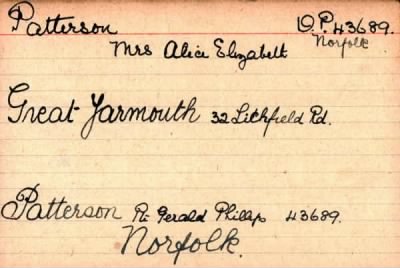 Patterson D.P. 43689.
Norfolk
Mrs Alice Elizabeth
Great Yarmouth 32 Lichfield Rd.
Patterson Pt. Gerald Phillip 43689.
Norfolk.